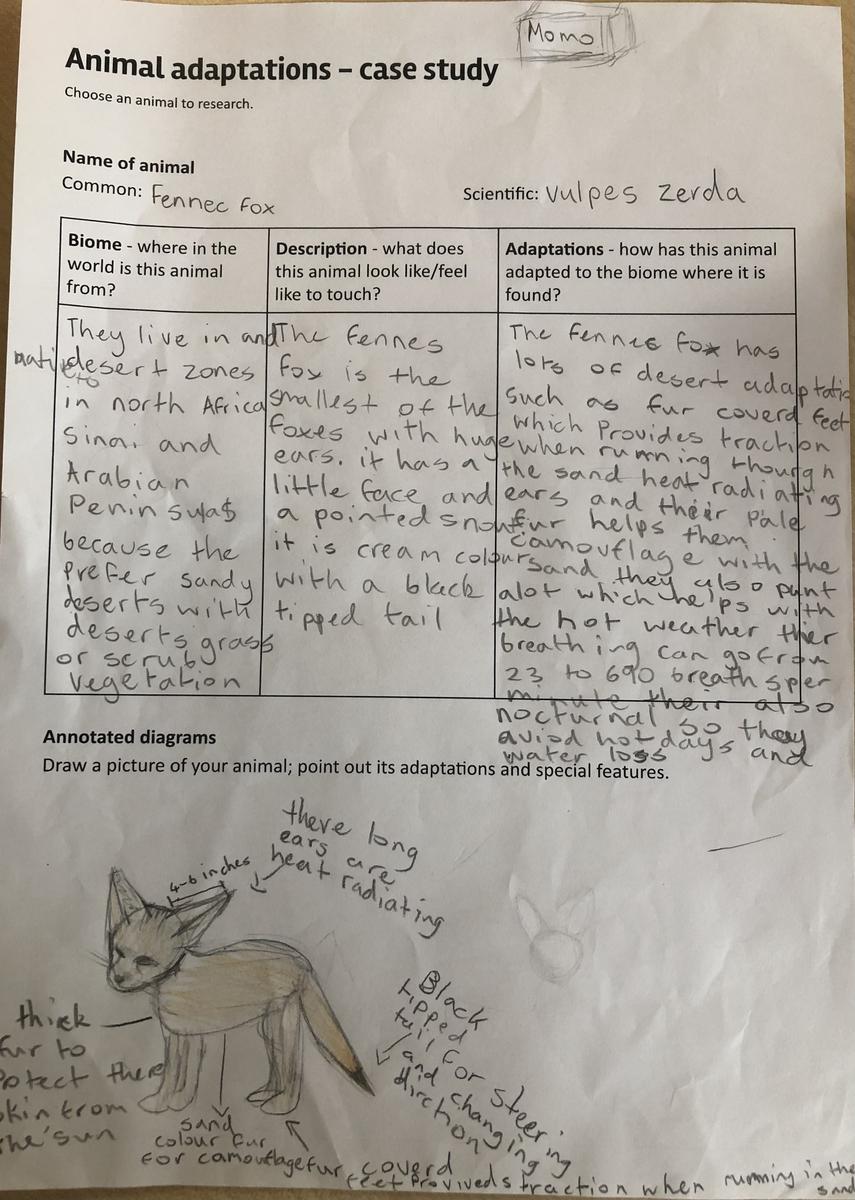 Momo
Animal adaptations – case study
Choose an animal to research.
Name of animal
Common: Fennec Fox
Scientific: Vulpes zerda
Biome - where in the
world is this animal
from?
They live in and
native to
desert zones
in north Africa
Sinai and
Arabian
Peninsulas
because the
Prefer sandy
deserts with
deserts grass
or scrub
vegetation
Description - what does
this animal look like/feel
like to touch?
The fennes
fox is the
smallest of the
foxes with huge
ears. it has a
little face and
a pointed snout
it is cream colour
with a black
tipped tail
Adaptations - how has this animal
adapted to the biome where it is
found?
The Fennec fox has
lots of desert adaptatio
such as fur coverd feet
which Provides traction
when running thourgh
the sand heat radiating
ears and their Pale
fur helps them
camouflage with the
sand they also pant
alot which helps with
the hot weather thier
breathing can go from
23 to 690 breaths per
minute their also
nocturnal so they
aviod hot days and
water loss
Annotated diagrams
Draw a picture of your animal; point out its adaptations and special features.
4-6 inches
there long
ears are
heat radiating
Black
tipped
tail for steering
and changing
dirction
thick
fur to
otect there
kin from
the sun
sand
colour fur
for camouflage
fur coverd
feet Proviveds traction when running in the
sand